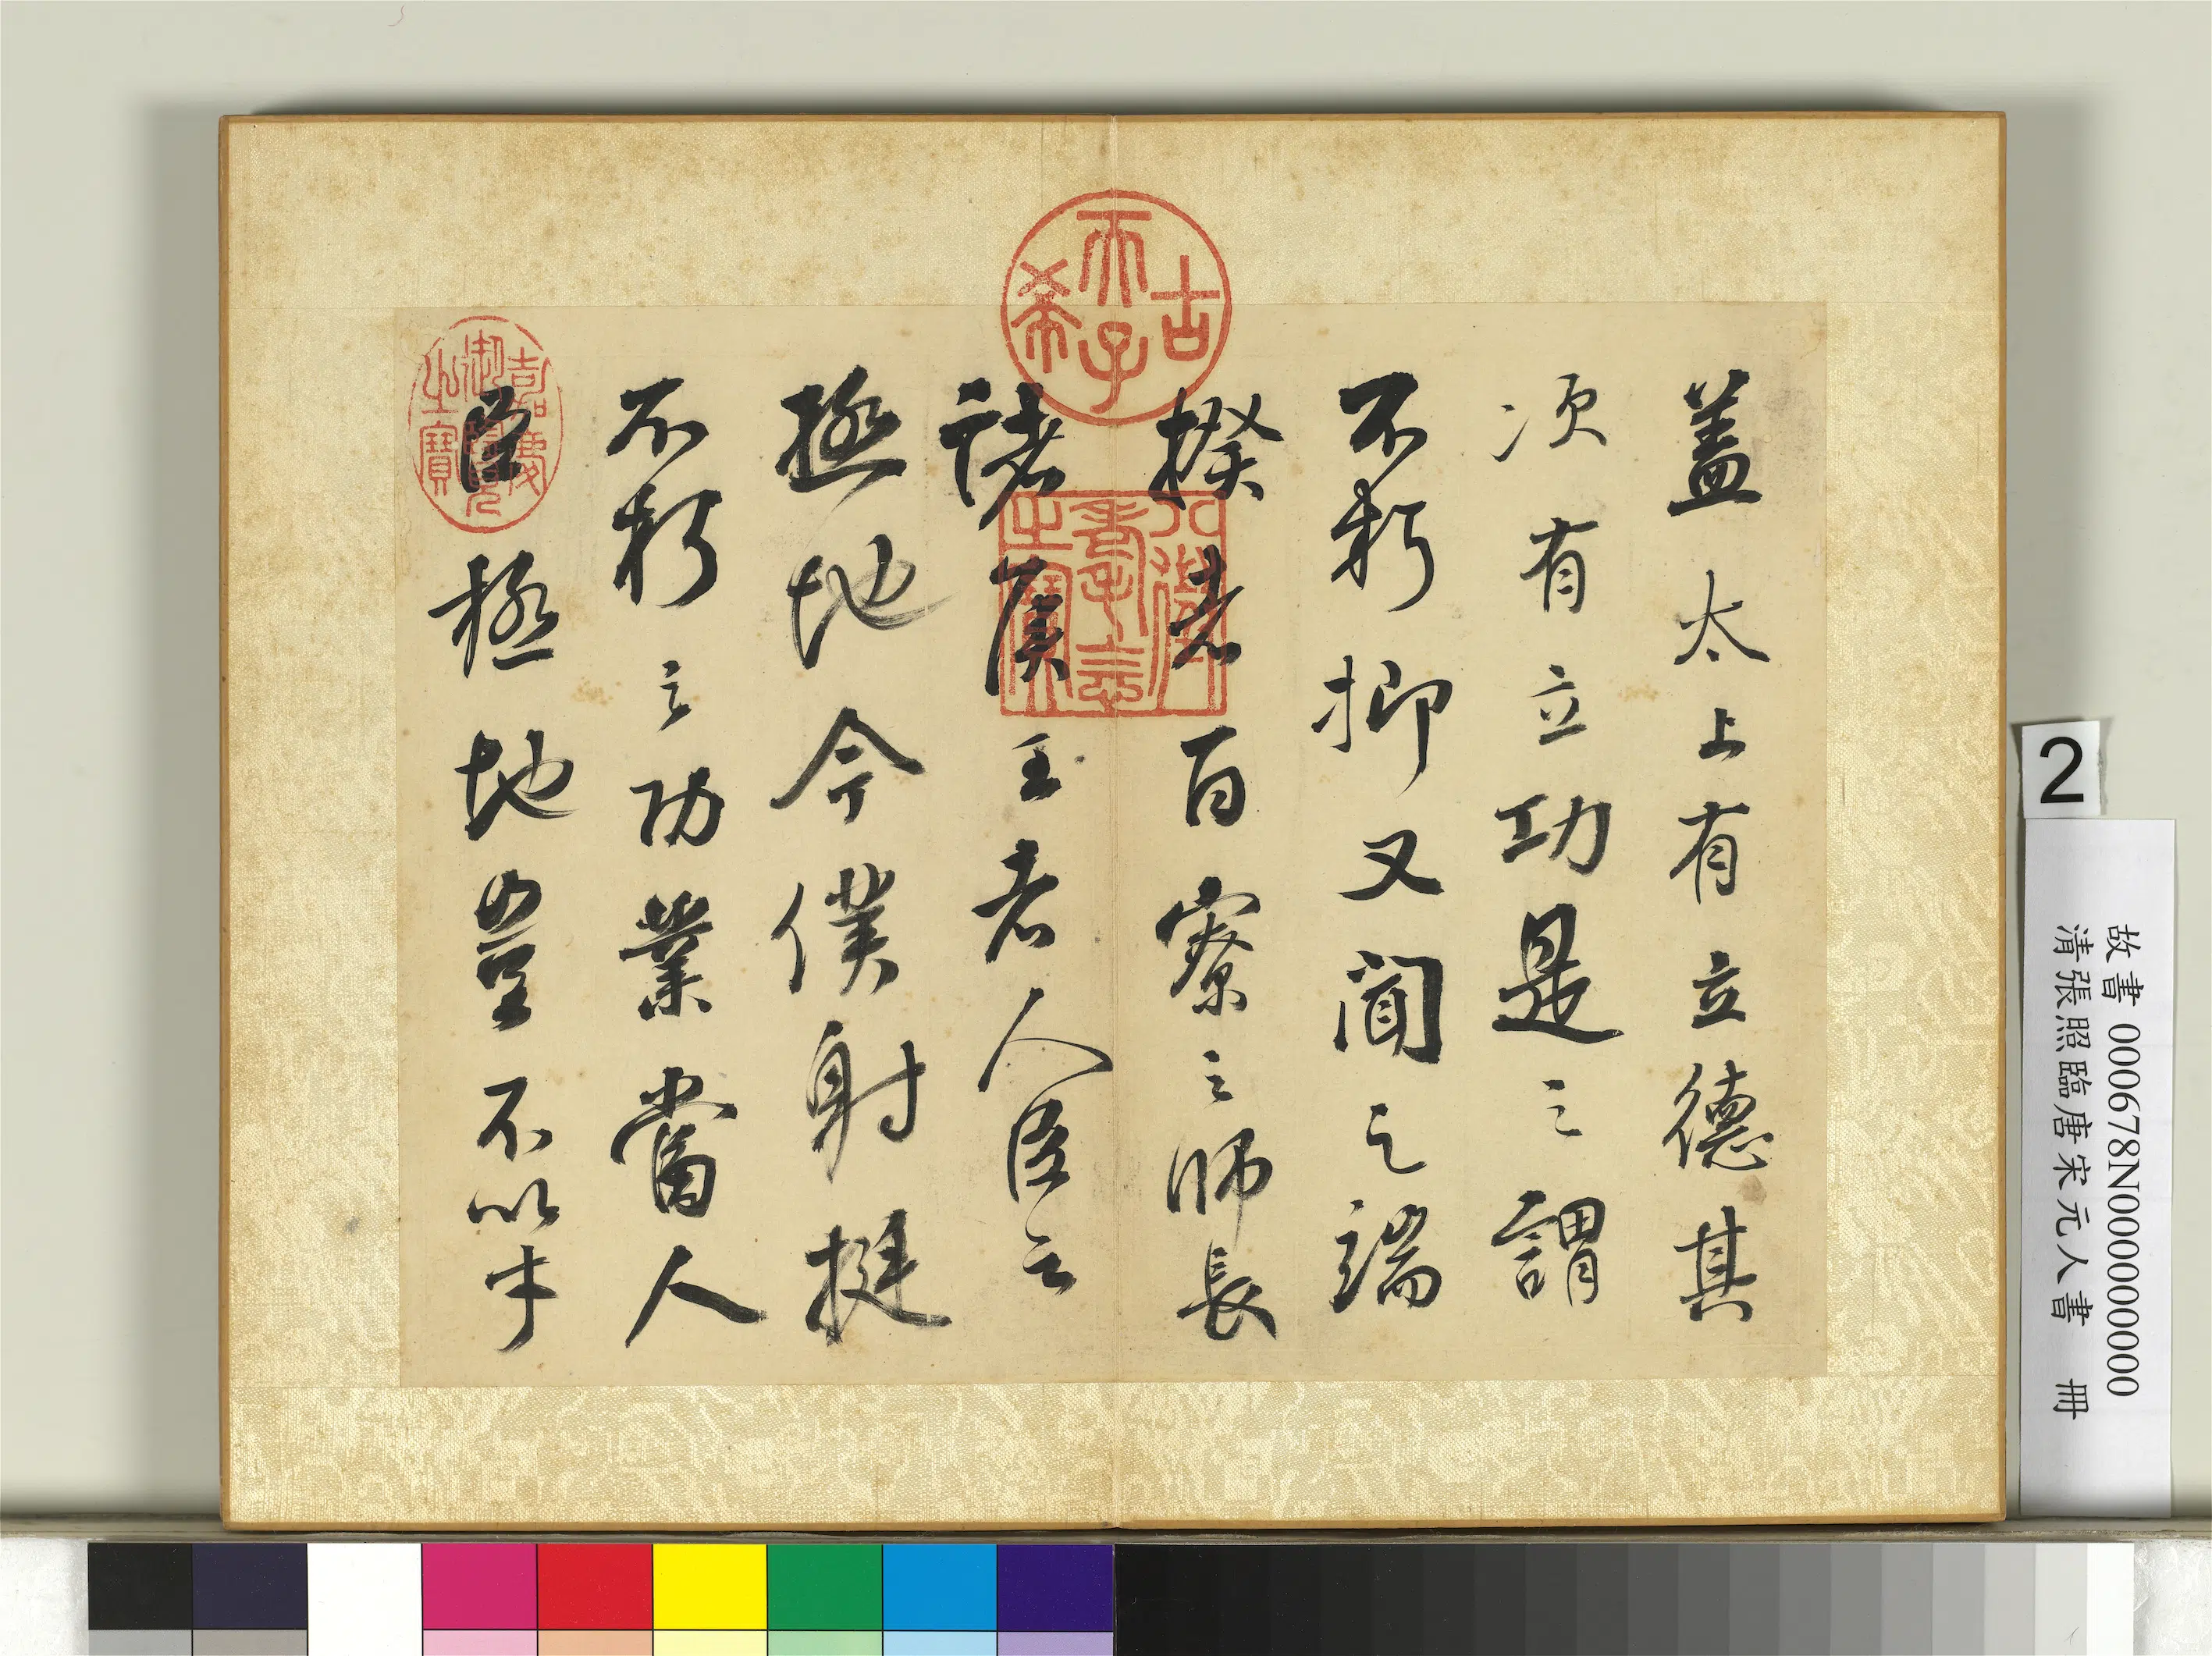 蓋太上有立德其
次有立功是之謂
不朽抑又聞之端
揆者百寮之師長
諸侯王者人臣之
極地今僕射挺
不朽之功業當人
臣極地豈不以才
古希天子
八徵耄念之寶
嘉慶御覽之寶
2
故書 000678N000000000
清張照臨唐宋元人書 冊